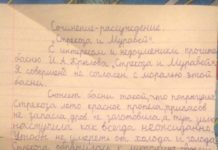 Сочинение-рассуждение.
"Стрекоза и Муравей".
С интересом и недоумением прочитал
басню И. А. Крылова "Стрекоза и Муравей".
Я совершенно не согласен с моралью этой
басни.
Сюжет басни такой, что попрыгунья
Стрекоза лето красное пропела, припасов
не запасла, дров не заготовила, а тут зима
наступила как всегда неожиданно.
Чтобы не умереть от холода и голода